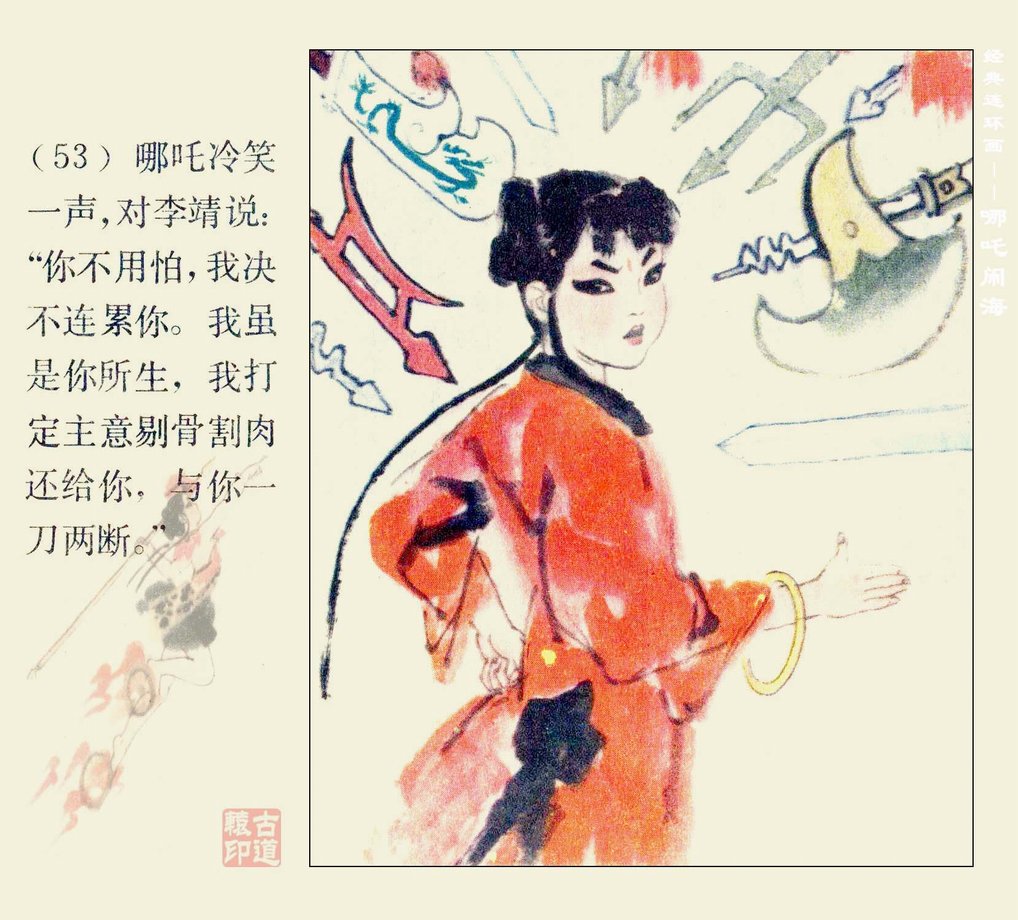 （53）哪吒冷笑
一声，对李靖说：
“你不用怕，我决
不连累你。我虽
是你所生，我打
定主意剔骨割肉
还给你，与你一
刀两断。”
经典连环画——哪吒闹海
古道
辕印